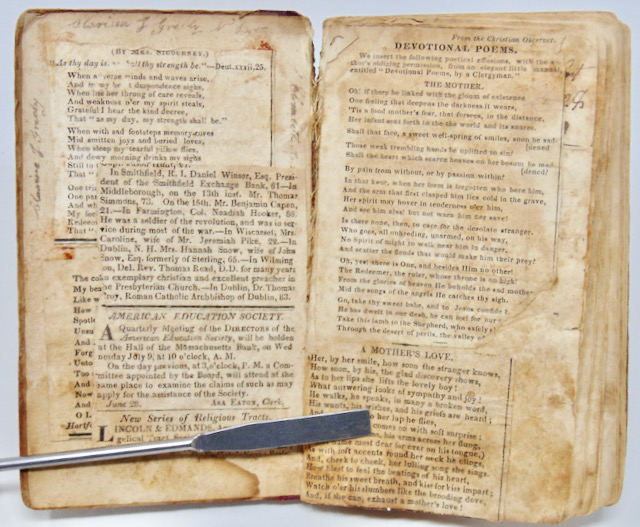 Clarissa L Greely
(BY MRS. SIGOURNEY.)
"As thy day is, so shall thy strength be."—Deut.xxxiii,25.
When adverse winds and waves arise,
And in my heart despondence sighs,
When life her throng of care reveals,
And weakness o'er my spirit steals,
Grateful I hear the kind decree,
That "as my day, my strength shall be."
When with sad footsteps memory roves
Mid smitten joys and buried loves,
When sleep my tearful pillow flies,
And dewy morning drinks my sighs
Still to
That "
One tri
And wh
My foo
Redeem
That "
In Smithfield, R. I. Daniel Winsor, Esq. Presi-
dent of the Smithfield Exchange Bank, 61—In
Middleborough, on the 13th inst. Mr. Thomas
Simmons, 73. On the 15th. Mr. Benjamin Capen,
21.—In Farmington, Col. Noadiah Hooker, 86.
He was a soldier of the revolution, and was in ser-
vice during most of the war.—In Wiscasset, Mrs.
Caroline, wife of Mr. Jeremiah Pike, 22.—In
Dublin, N. H. Mrs. Hannah Snow, wife of John
Snow, Esq. formerly of Sterling, 65.—In Wilming
on, Del. Rev. Thomas Road, D.D. for many years
exemplary christian and excellent preacher in
he Presbyterian Church.—In Dublin, Dr. Thomas
roy, Roman Catholic Archbishop of Dublin, 83.
The
My ben
Like w
How
Spotl
Unsu
And
Forg
Unto
Too
And
Now
And
O L
Hartf
AMERICAN EDUCATION SOCIETY.
A Quarterly Meeting of the DIRECTORS of the
American Education Society, will be holden
at the Hall of the Massachusetts Bank, on Wed
nesday July 9, at 10 o'clock, A. M.
On the day previous, at 3,o'clock, P. M. a Com-
mittee appointed by the Board, will attend at the
same place to examine the claims of such as may
apply for the assistance of the Society.
June 28. ASA EATON, Clerk.
New Series of Religious Tracts.
LINCOLN & EDMANDS,
gelical Tract
From the Christian Observer.
DEVOTIONAL POEMS.
We insert the following poetical effusions, with the au-
thor's obliging permission, from an elegant little manual,
entitled "Devotional Poems, by a Clergyman."
THE MOTHER.
Oh! if there be linked with the gloom of existence
One feeling that deepens the darkness it wears,
'Tis a fond mother's fear, that forsees, in the distance,
Her infant sent forth to the world and its snares.
Shall that face, a sweet well-spring of smiles, soon be sad-
[dened
Those weak trembling hands be uplifted to sin?
Shall the heart which scarce heaves on her bosom be mad-
[dened
By pain from without, or by passion within?
In that hour, when her form is forgotten who bore him,
And the arm that first clasped him lies cold in the grave,
Her spirit may hover in tenderness o'er him,
And see him sink! but not warn him nor save!
Is there none, then, to care for the desolate stranger,
Who goes, all unheeding, unarmed, on his way,
No Spirit of might to walk near him in danger,
And scatter the fiends that would make him their prey?
Oh, yes; there is One, and besides Him no other!
The Redeemer, the ruler, whose throne is on high!
From the glories of heaven He beholds the sad mother
Mid the songs of the angels He catches thy sigh.
Go, take thy sweet babe, and to Jesus confide
He has dwelt in our dead, he can feel for our
Take this lamb to the Shepherd, who safely
Through the desert of perils, the valley of
A MOTHER'S LOVE.
Her, by her smile, how soon the stranger knows,
How soon, by his, the glad discovery shows,
As to her lips she lifts the lovely boy!
What answering looks of sympathy and joy!
He walks, he speaks, in many a broken word,
His wants, his wishes, and his griefs are heard;
And to her lap he flies,
comes on with soft surprise;
his arms across her flung,
name most dear for ever on his tongue,)
As with soft accents round her neck he clings,
And, cheek to cheek, her lulling song she sings.
How blest to feel the beatings of his heart,
Breathe his sweet breath, and kiss for kiss impart;
Watch o'er his slumbers like the brooding dove,
And, if she can, exhaust a mother's love!